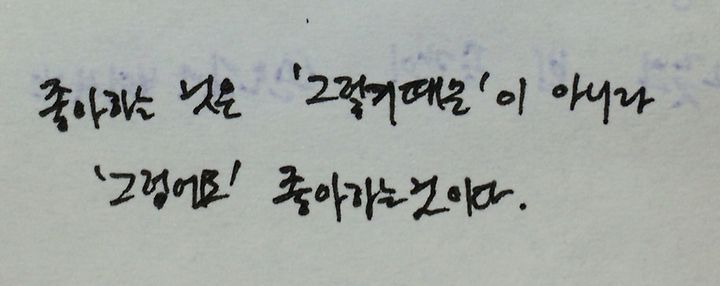 좋아하는 것은 '그렇기때문'이 아니라
'그럼에도' 좋아하는것이다.